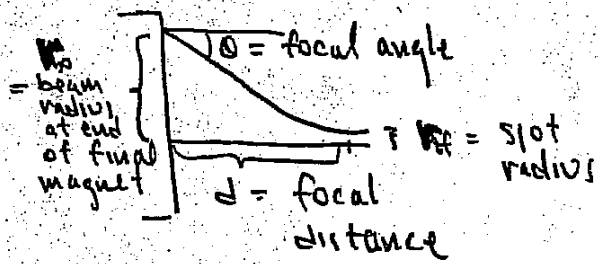 θ = focal angle
= beam
radius
at end
of final
magnet
= slot
radius
d = focal
distance